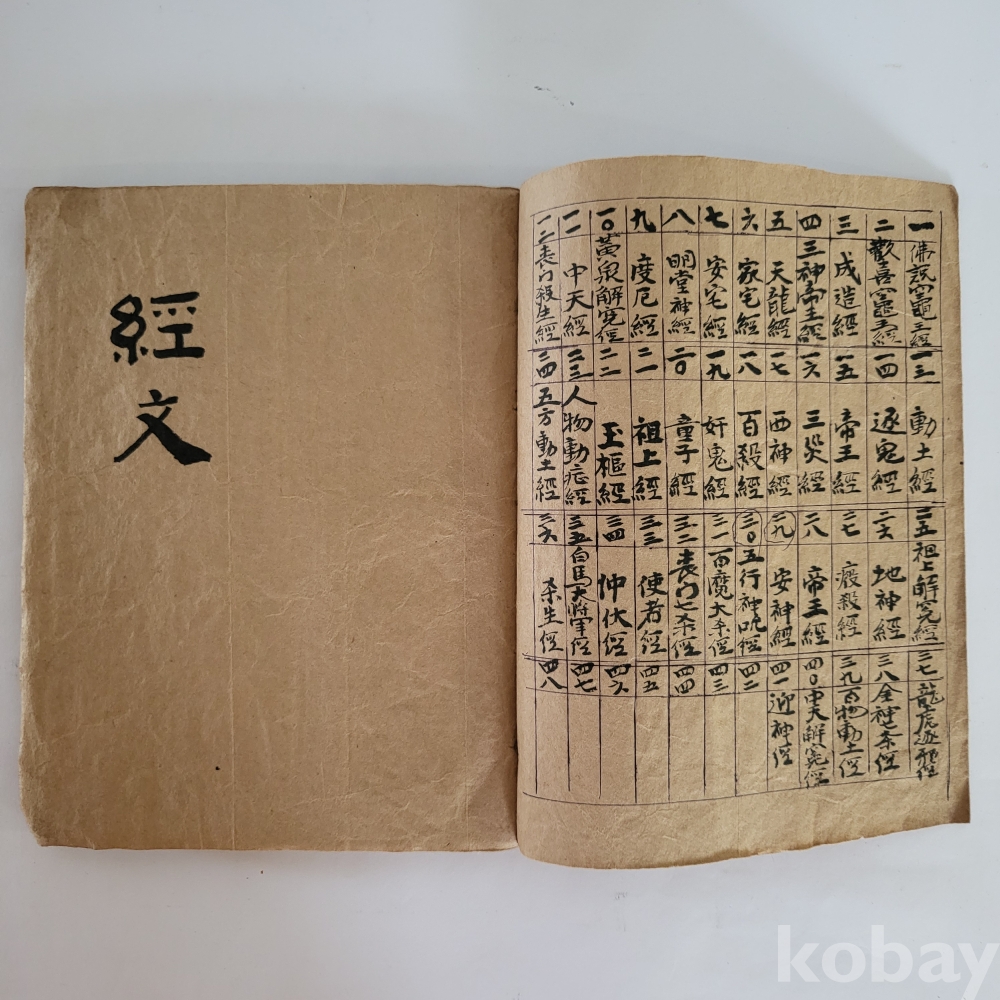 經文
一 佛說竈王經
二 歡喜竈王經
三 成造經
四 三神帝王經
五 天龍經
六 家宅經
七 安宅經
八 明堂神經
九 度厄經
一〇 黃泉解冤經
一一 中天經
一二 喪門殺生經
一三 動土經
一四 逐鬼經
一五 帝王經
一六 三災經
一七 西神經
一八 百殺經
一九 奸鬼經
二〇 童子經
二一 祖上經
二二 玉樞經
二三 人物動症經
二四 五方動土經
二五 祖上解冤經
二六 地神經
二七 殺經
二八 帝王經
二九 安神經
三〇 五行神呪經
三一 百魔大杀經
三二 喪門七杀經
三三 使者經
三四 仲伏經
三五 白馬大將軍經
三六 杀生經
三七 龍虎逐邪經
三八 金神七杀經
三九 百物動土經
四〇 中天解冤經
四一 迎神經
四二
四三
四四
四五
四六
四七
四八
kobay